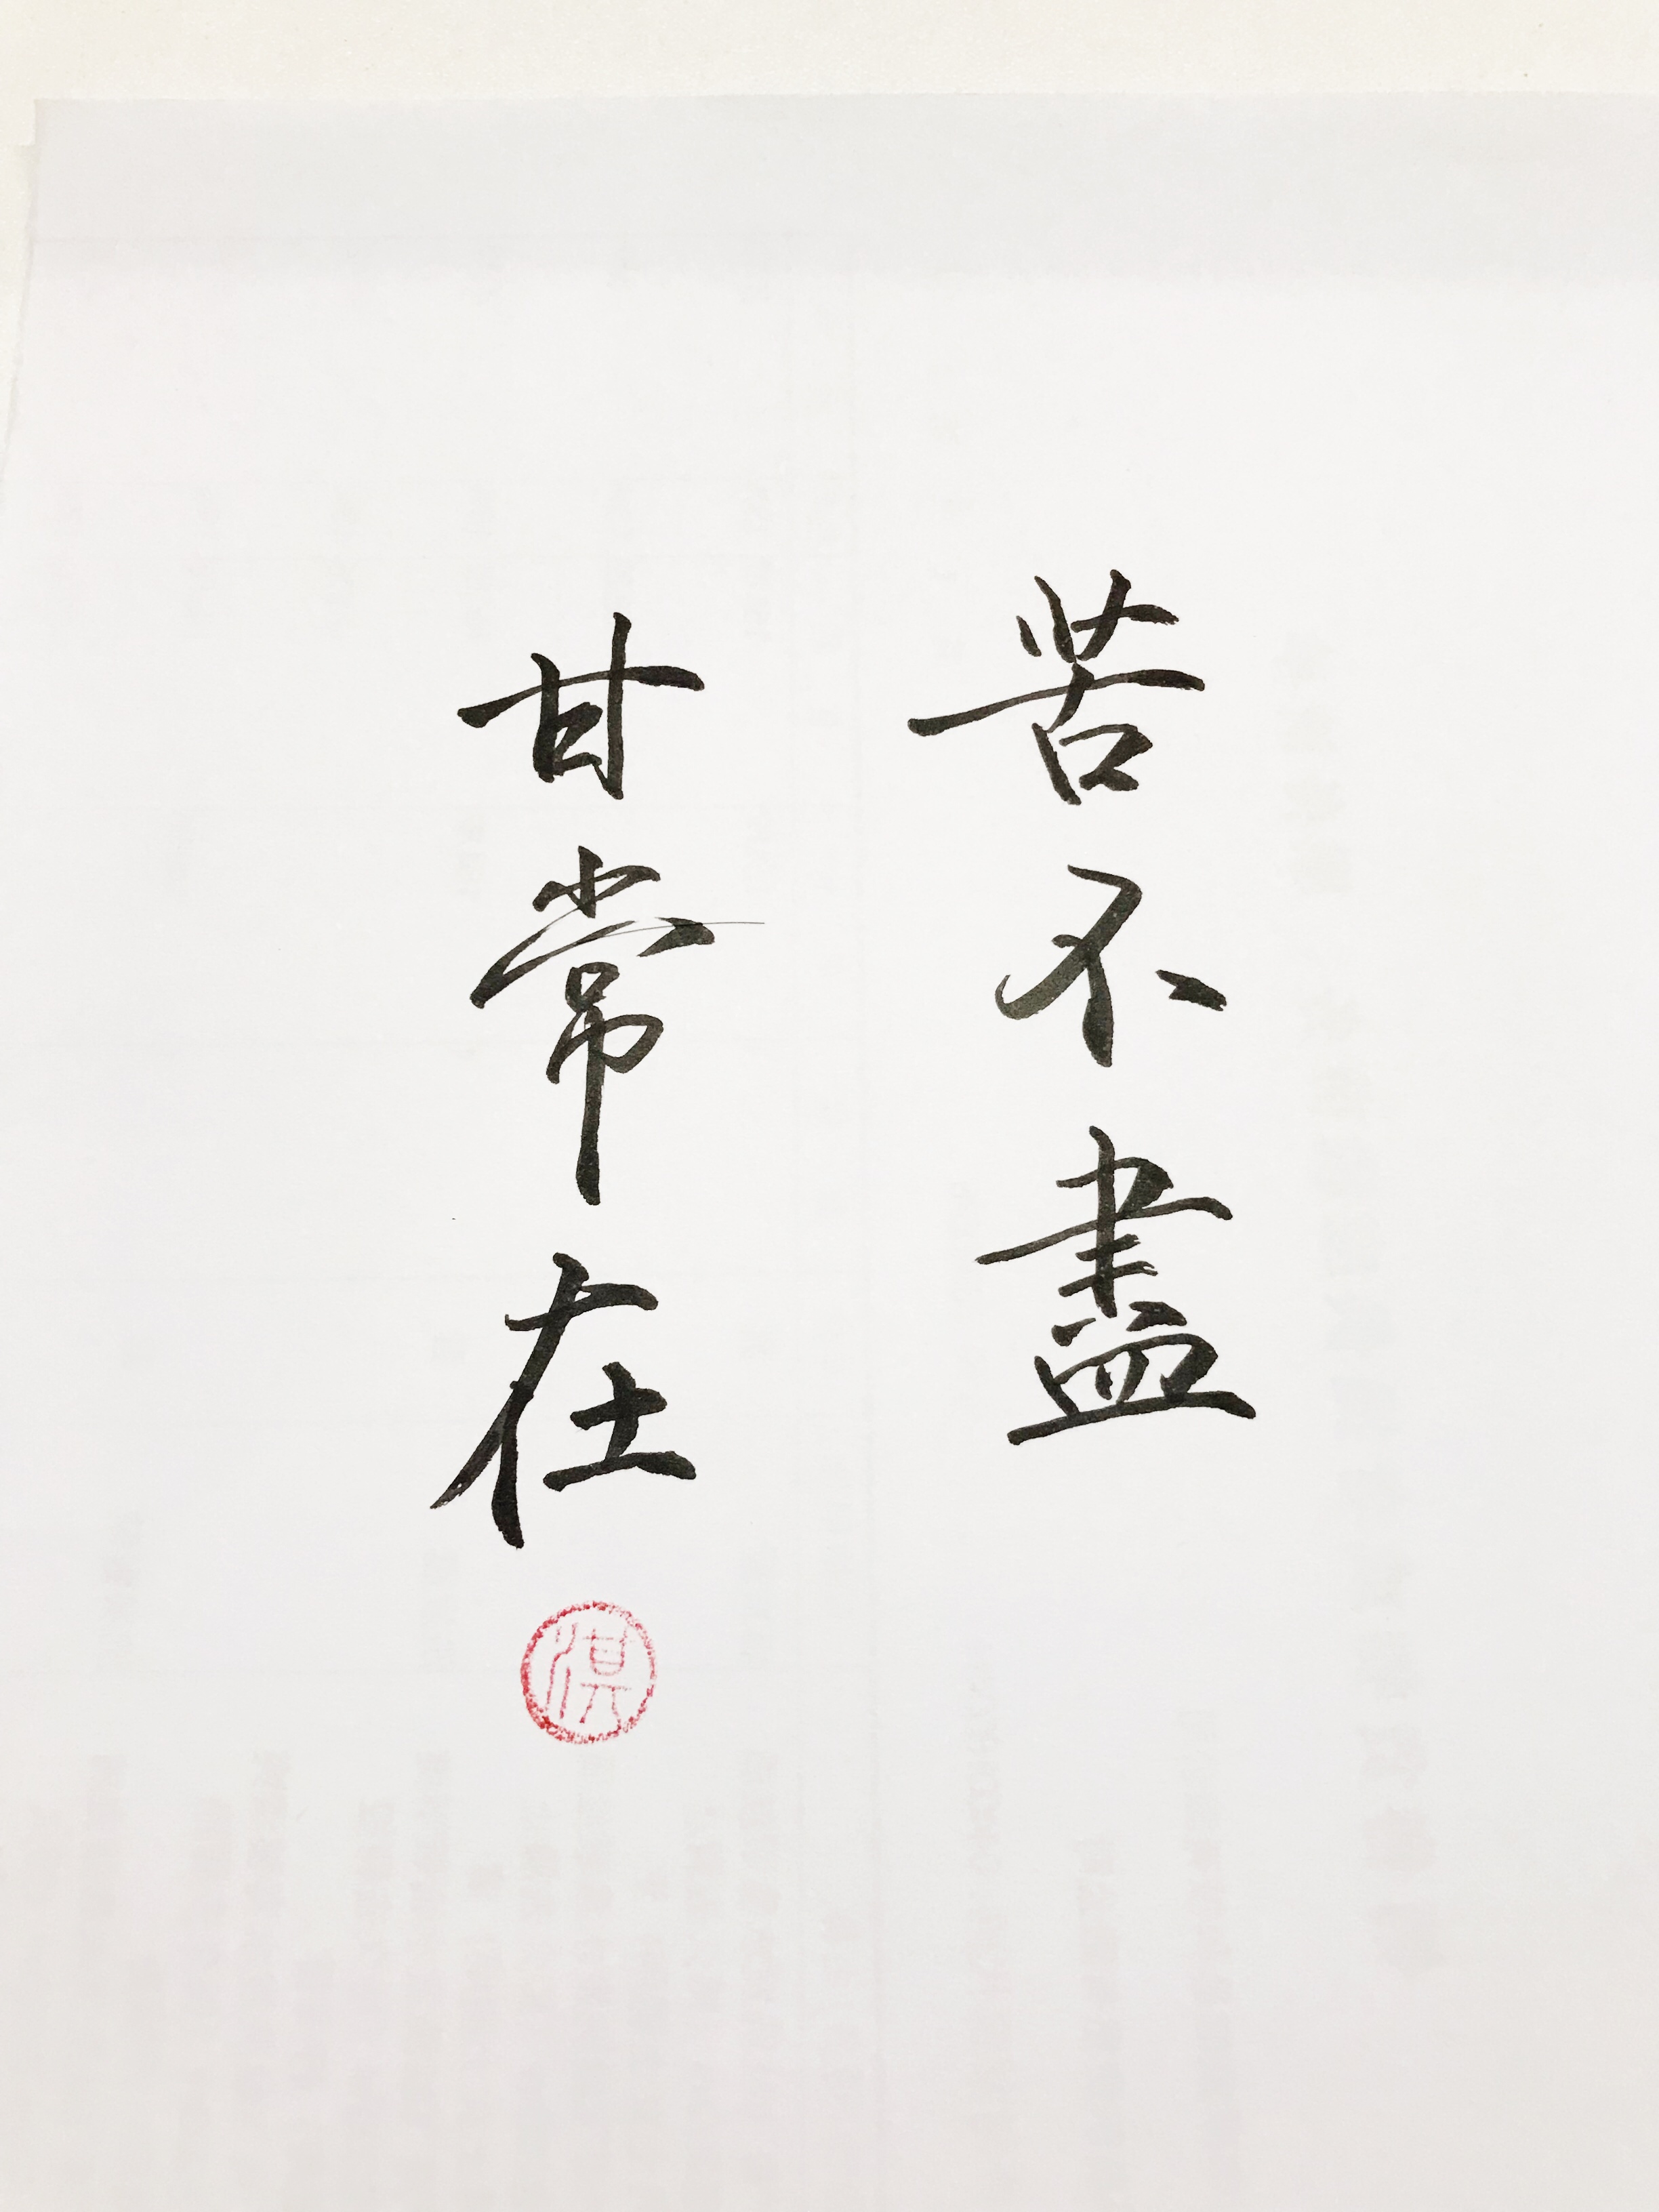 苦不盡
甘常在
淇